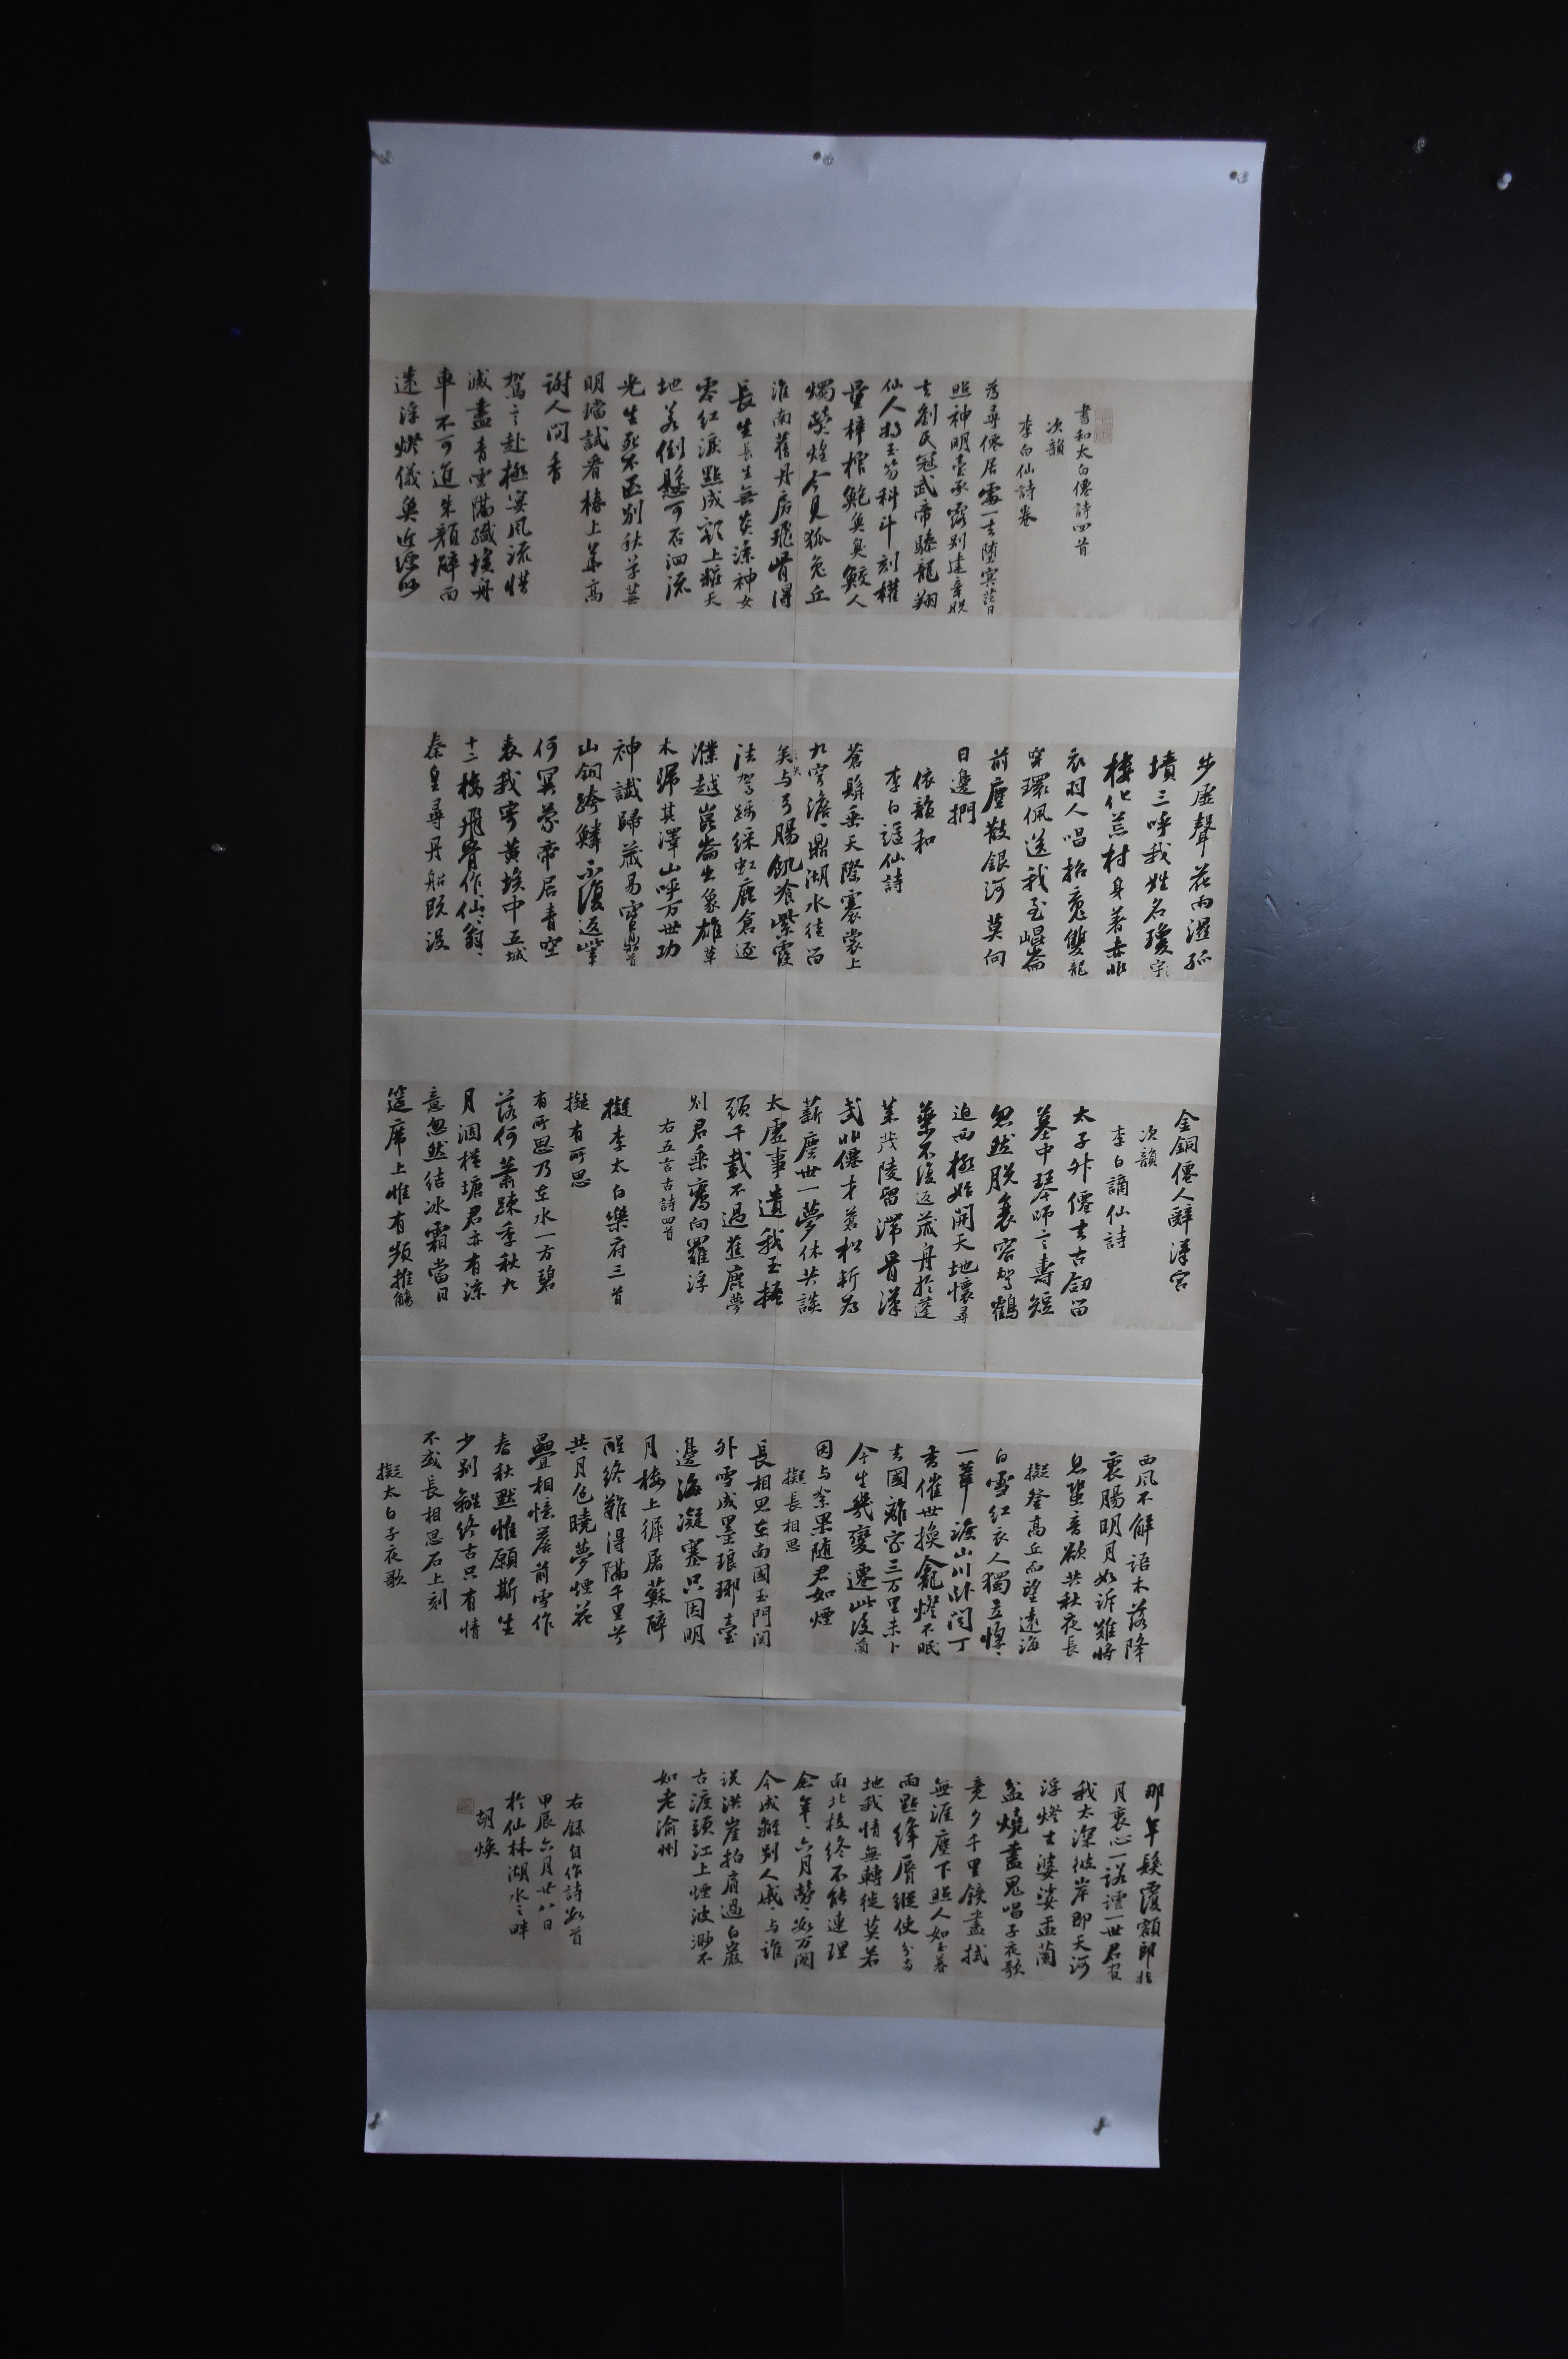 書和太白僊詩四首
次韻
李白仙詩卷
為尋僊居處一去墮冥茫日
照神明臺承露別建章脫
去劉氏冠武帝驂龍翔
仙人掐玉笏科斗刻權
量梓棺鮑魚臭鮫人
燭熒煌今見狐兔丘
淮南舊丹房飛骨得
長生長生無英漆神女
零紅淚點成額上粧天
地若倒懸可否泗流
光生死不區別秋草蕪
明璫試看樁上華高
謝人間香
駕言赴極宴風流惜
減盡青雲隔纖埃舟
車不可追朱顏醉而
遠浮燈儀奐近深似
步虛聲花雨濕孤
墳三呼我姓名瓊宗
樓化荒村身著赤非
衣羽人唱招魂雙龍
穿環佩送我至崐崙
前塵散銀河莫向
日邊捫
依韻和
李白謫仙詩
蒼縣垂天際褰裳上
九穹澹澹鼎湖水徒留
矣与弓腸飢飡紫霞
法駕蹑綵虹鹿倉逐
濮越崑崙生象雄草
木歸其澤山呼万世功
神讖歸藏易寶鼎首
山銅跨鱗不復返掌
何冥蒙帝居青空
表我寄黃埃中五城
十二橋飛骨作仙翁
秦皇尋丹船既沒
金銅僊人辭漢宮
次韻
李白謫仙詩
太子外僊去古劍留
墓中琴師言壽短
忽然脫衰容駕鶴
迫西極始開天地懷尋
藥不復返藏舟於蓬
萊茂陵留滯骨漢
武非僊才蒼松斬為
薪塵世一夢休共談
太虛事遺我玉搔
頭千載不過蕉鹿夢
別君乘鸞向羅浮
右五言古詩四首
擬李太白樂府三首
擬有所思
有所思乃在水一方碧
落何蕭踈季秋九
月涸橫塘君亦有深
意忽然結冰霜當日
筵席上惟有頻推觴
西風不解語木落降
衷腸明月如訴難將
息蛩音欲共秋夜長
擬登高丘而望遠海
白雪紅衣人獨立惇惇
一葦渡山川卧閱丁
書催世換龕燈不眠
去國離家三万里未卜
今生幾變遷此後蘭
因与絮果隨君如煙
擬長相思
長相思在南國玉門関
外雪成墨琅琊臺
邊海凝塞只因明
月樓上犀屠蘇醉
醒終難得隔千里兮
共月色曉夢煙花
疊相憶落荷雪作
春秋默惟願斯生
少別離終古只有情
不或長相思石上刻
擬太白子夜歌
那年髮覆額郎指
月裏心一諾諾一世君宿
我太深彼岸即天河
浮燈去婆娑盂蘭
盆燒盡鬼唱子夜歌
竟夕千里鏡盡拭
無涯塵下照人如玉暮
雨點絳唇縱使分南
地我情無轉徙莫若
南北枝終不能連理
念年年六月勞勞如万関
今成離別人戚戚与誰
說洪崖拍肩過白巖
古渡頭江上煙波渺不
如老渝州
右録自作詩如首
甲辰六月廿八日
於仙林湖水之畔
胡煥